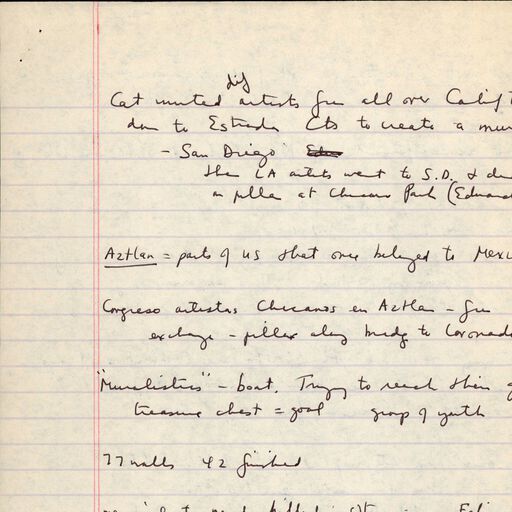 dif
Cat invited artists from all over Calif
down to Estrada Cts to create a mur
- San Diego
then LA artists went to S.D. & d
on pillar at Chicano Park (Eduard
Aztlan = parts of US that once belonged to Mexi
Congreso artistas Chicanos en Aztlan - for
exchange - pillar along bridg to Coronado
"Muralistics" - boat. Trying to reach their g
treasure chest = goal group of youth
77 walls 42 finished